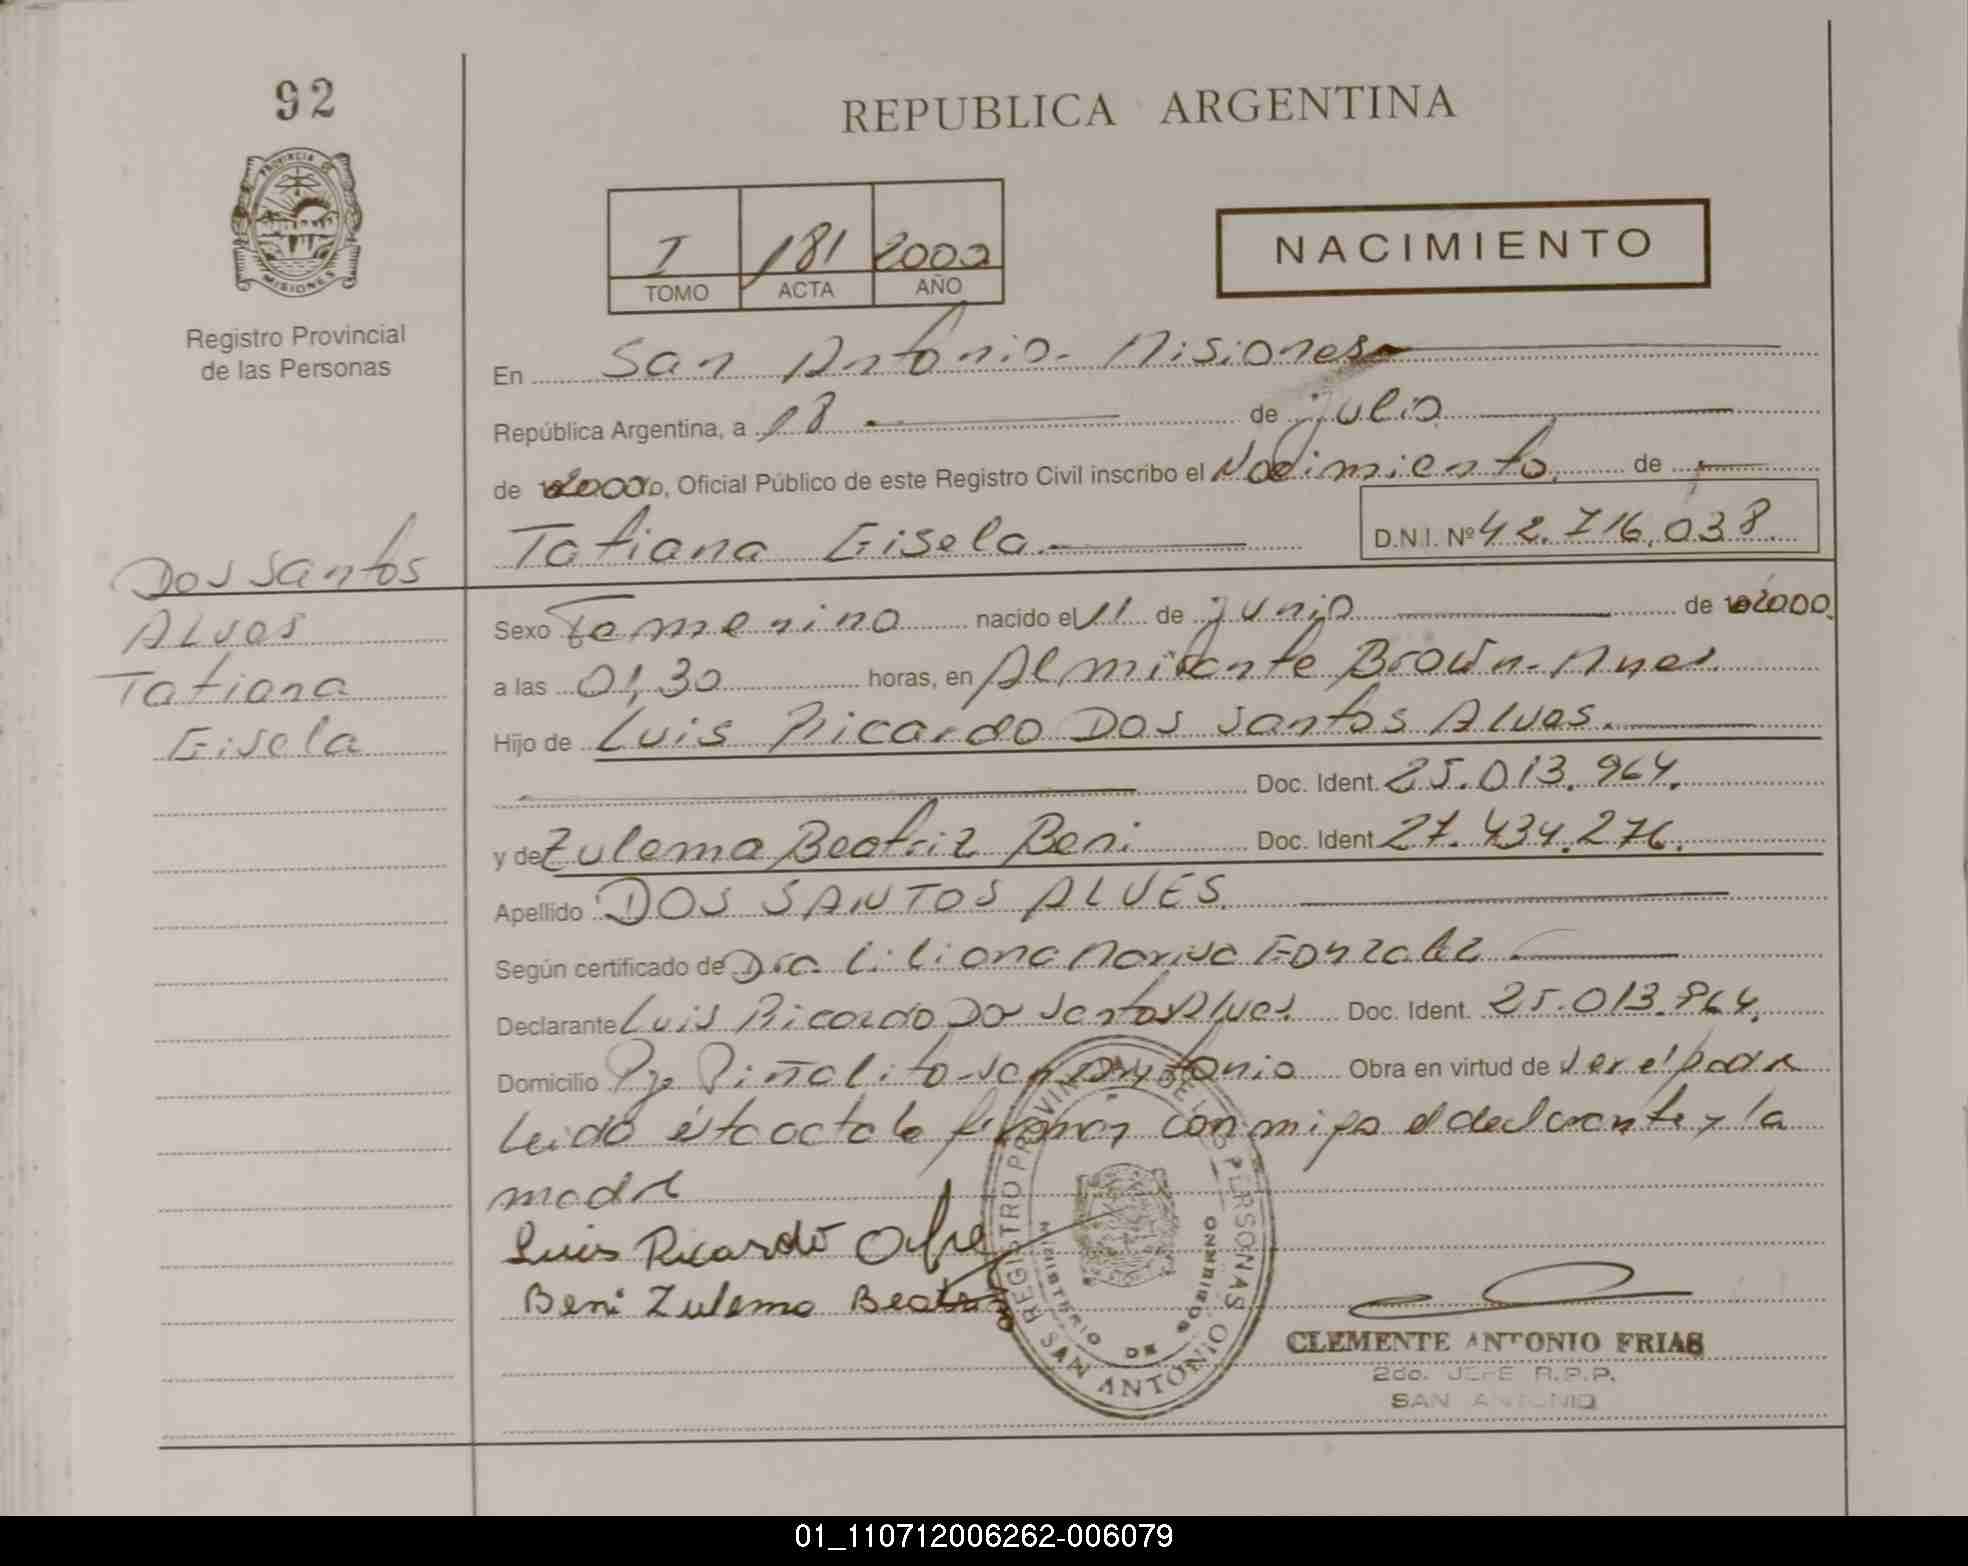 92
REPUBLICA ARGENTINA
PROVINCIA DE
MISIONES
Registro Provincial
de las Personas
I 181 2000
TOMO ACTA AÑO
NACIMIENTO
En San Antonio - Misiones
República Argentina, a 18 de julio
de 2000, Oficial Público de este Registro Civil inscribo el Nacimiento de
Tatiana Gisela D.N.I. Nº 42.716.038
Dos Santos
Alves
Tatiana
Gisela
Sexo Femenino nacido el 11 de junio de 2000
a las 01,30 horas, en Almirante Brown - Mnes
Hijo de Luis Ricardo Dos Santos Alves.
Doc. Ident. 25.013.964.
y de Zulema Beatriz Beni Doc. Ident. 27.434.276.
Apellido DOS SANTOS ALVES
Según certificado de Dra. Liliana Marisa Gonzalez
Declarante Luis Ricardo Dos Santos Alves Doc. Ident. 25.013.964.
Domicilio Pje Piñalito - San Antonio Obra en virtud de ser el padre
Leida ésta acta la firman conmigo el declarante y la
madre
Luis Ricardo
Beni Zulema Beatriz
REGISTRO PROVINCIAL DE LAS PERSONAS
MINISTERIO DE GOBIERNO
SAN ANTONIO
CLEMENTE ANTONIO FRIAS
2do. JEFE R.P.P.
SAN ANTONIO
01_110712006262-006079